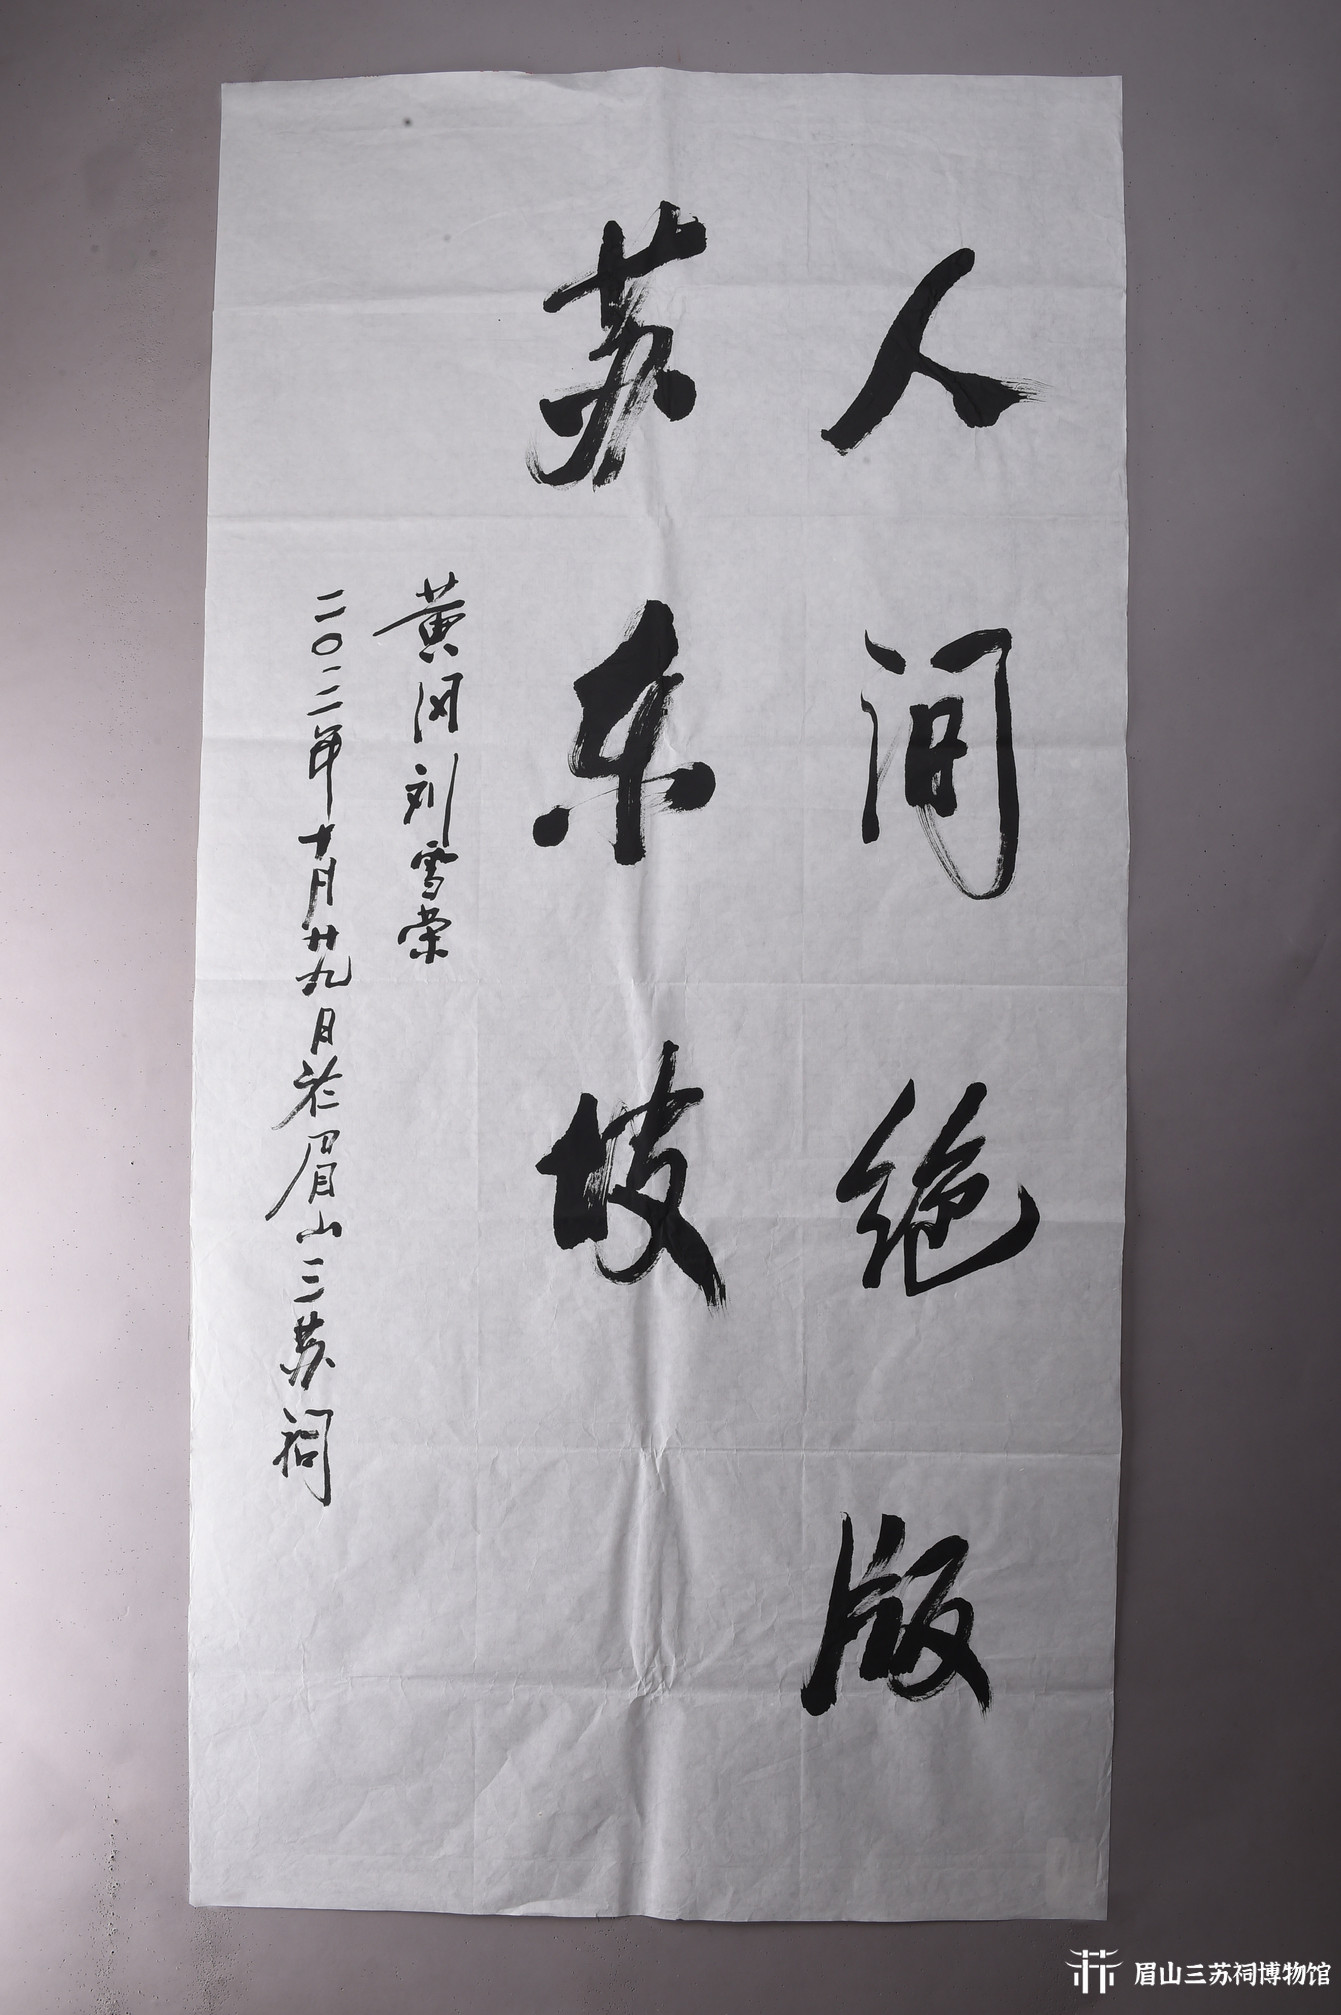 人间绝版
苏东坡
黄冈刘雪荣
二〇二二年十月廿九日於眉山三苏祠
眉山三苏祠博物馆